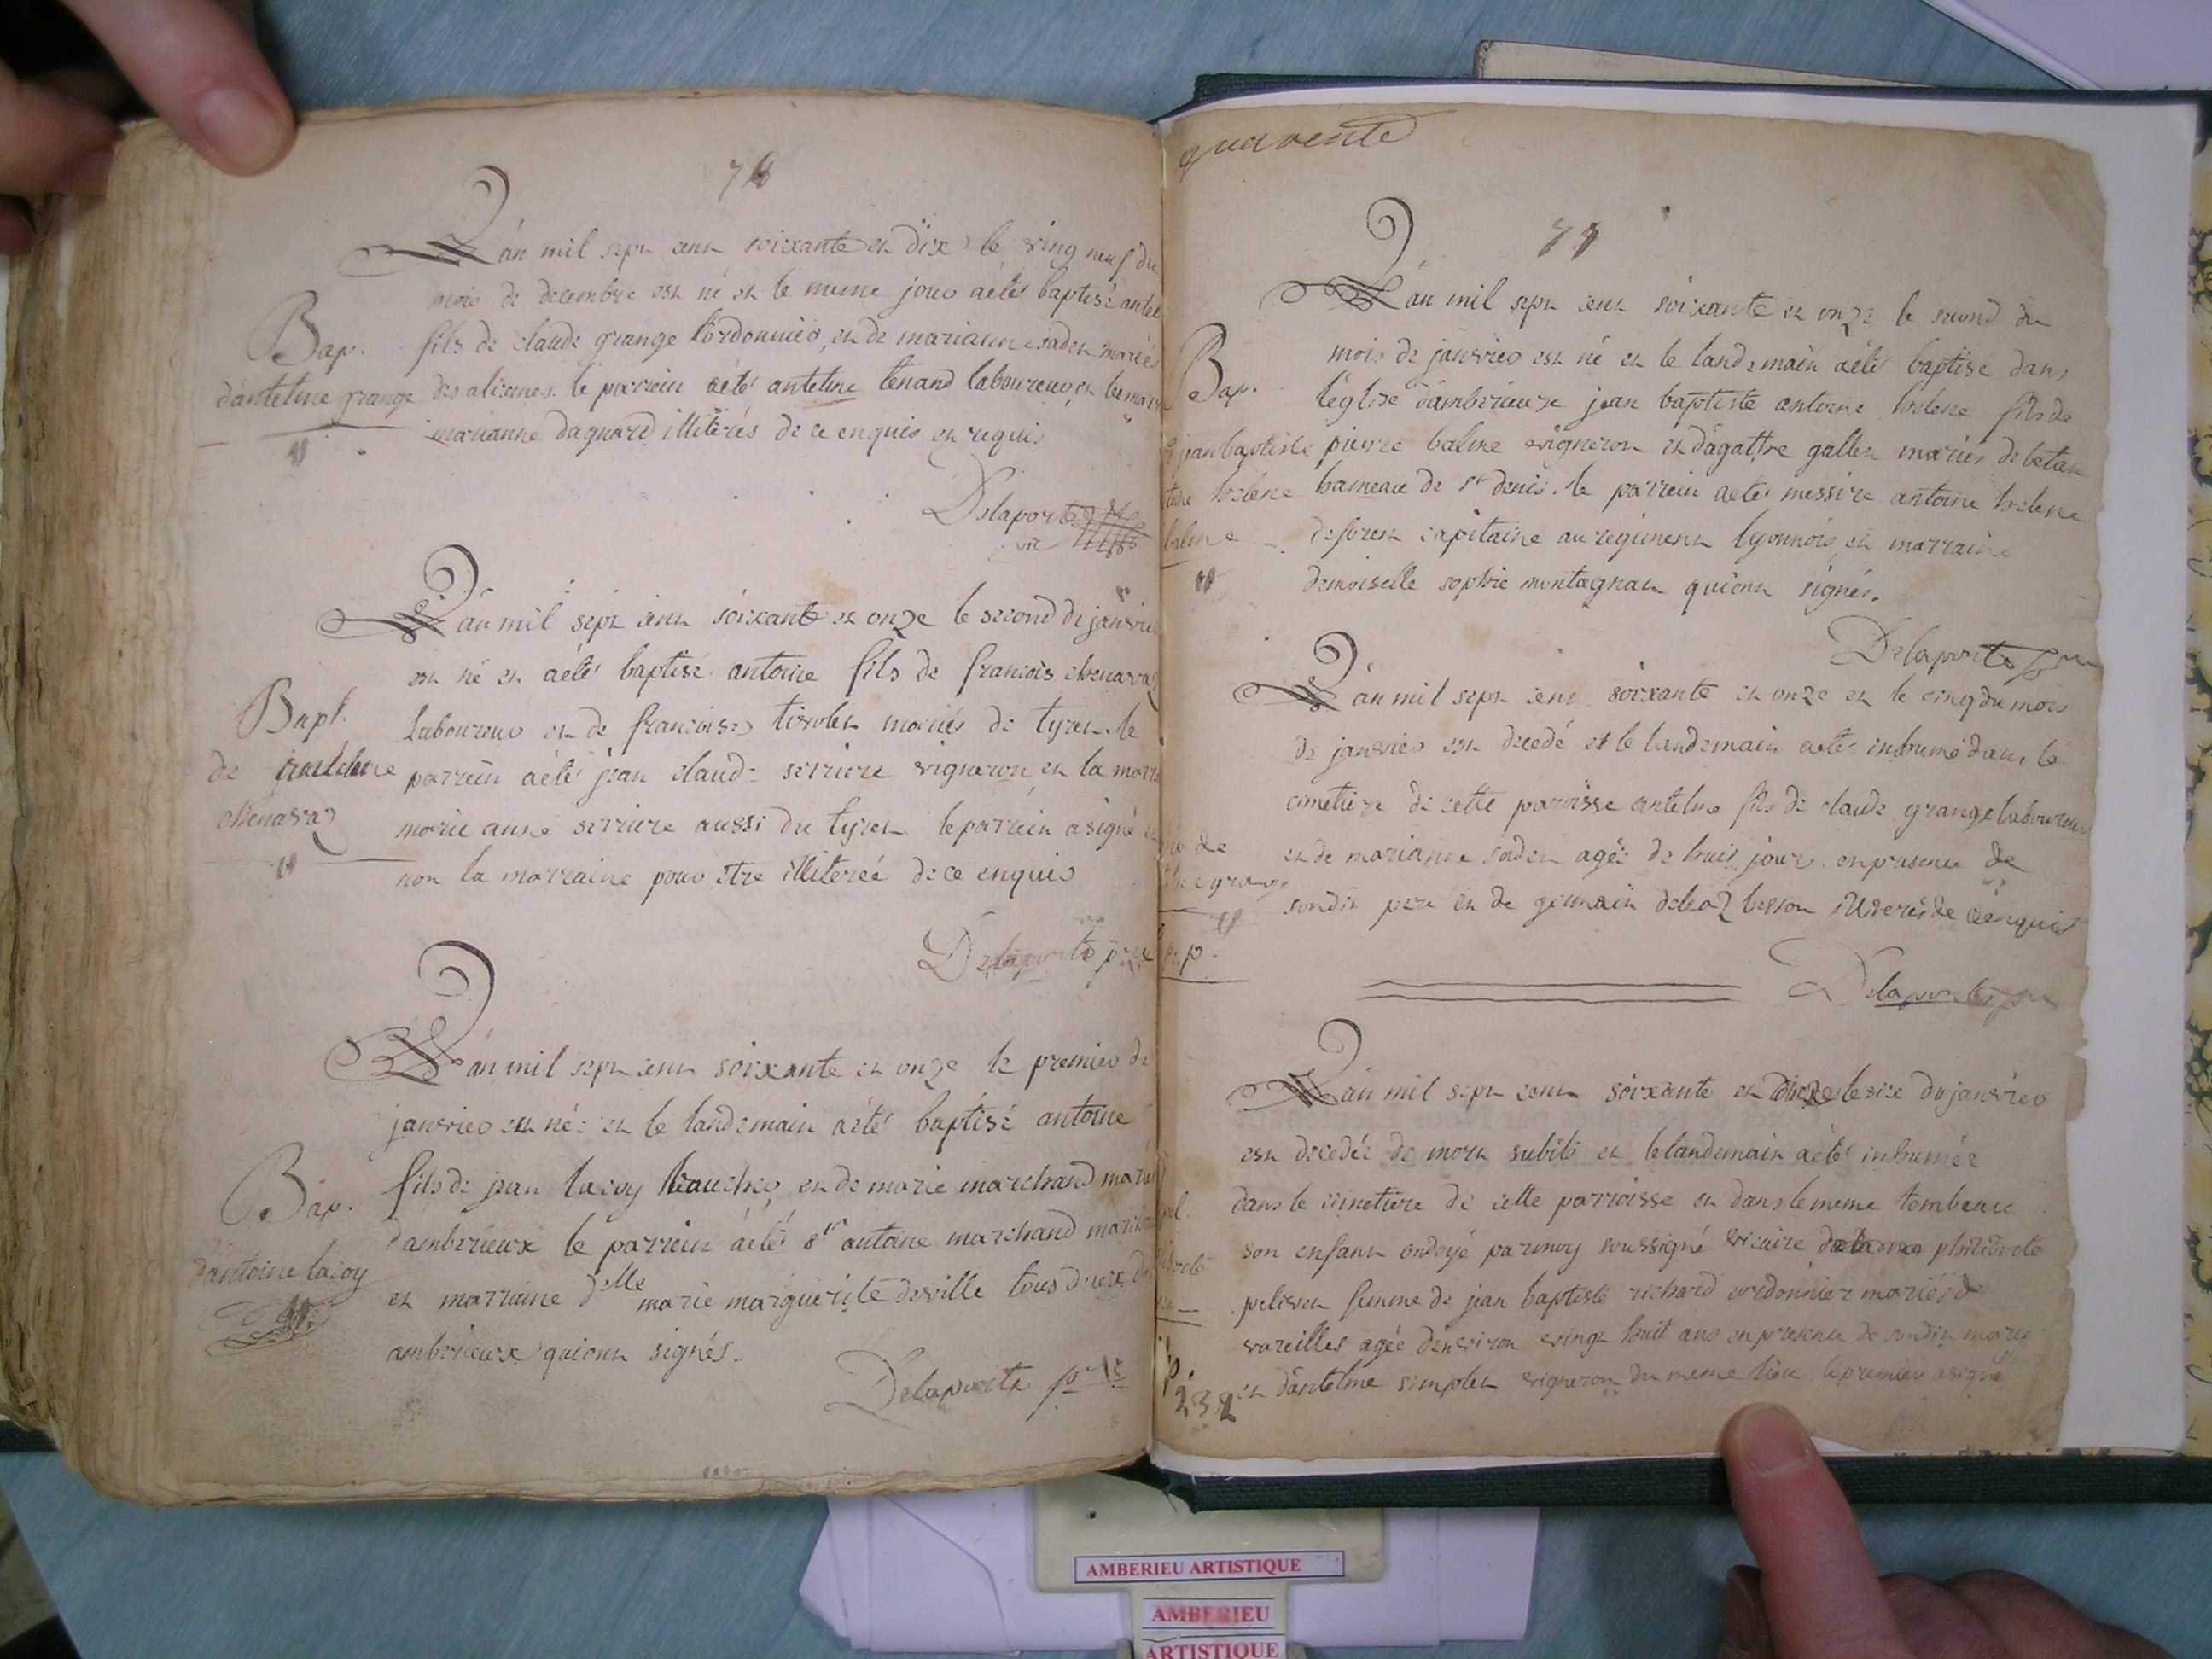 76
L'an mil sept cent soixante et dix le ving neuf du
mois de decembre est né et le meme jour aété baptisé antel
Bap. fils de claude grange Cordonnier, et de marianne sadet mariés
d'antelme grange des alismes. le parrein aété antelme tenand laboureur, et la mar
marianne daguard illiterés de ce enquis et requis
Delaporte
vic
L'an mil sept cent soixante et onze le second de janvier
est né et aété baptisé antoine fils de francois chenavaz
Bapt. Laboureur et de francoise tirolet mariés de tyret. le
de chenavaz parrein aété jean claude serriere vigneron et la marr
marie anne serriere aussi du tyret le parrein a signé et
non la marraine pour etre illitereé de ce enquis
Delaporte
L'an mil sept cent soixante et onze le premier de
janvier est né et le landemain aété baptisé antoine
Bap. fils de jean lacoy et de marie marchand mariés
d'antoine lacoy d'amberieux le parrein aété sr antoine marchand
et marraine delle marie marguerite deville tous deux
amberieux qui ont signés.
Delaporte
quarente
77
L'an mil sept cent soixante et onze le second du
mois de janvier est né et le landemain aété baptise dans
Bap. l'église d'amberieux jean baptiste antoine helene fils de
jean baptiste pierre balme vigneron et d'agathe gallet mariés de betan
helene hameau de st denis. le parrein aeté messire antoine helene
balme deforest capitaine au regiment lyonnois et marraine
demoiselle sophie montagnat qui ont signés.
Delaporte
L'an mil sept cent soixante et onze et le cinq du mois
de janvier est decedé et le landemain aété inhumé dans le
cimetiere de cette paroisse antelme fils de claude grange laboureur
de et de marianne sadet agée de huit jours en presence de
grange sondit pere et de germain besson de ce enquis
Delaporte
L'an mil sept cent soixante et onze le six du janvier
est decedée de mort subite et le landemain aété inhumée
dans le cimetiere de cette parroisse et dans le meme tombeau
son enfant ondoyé par moy soussigné vicaire philiberte
pelisset femme de jean baptiste richard cordonnier mariés de
vareilles agée d'environ vingt huit ans en presence de sondit mari
et d'antelme simplet vigneron du meme lieu le premier a signé
232
AMBERIEU ARTISTIQUE
AMBERIEU
ARTISTIQUE